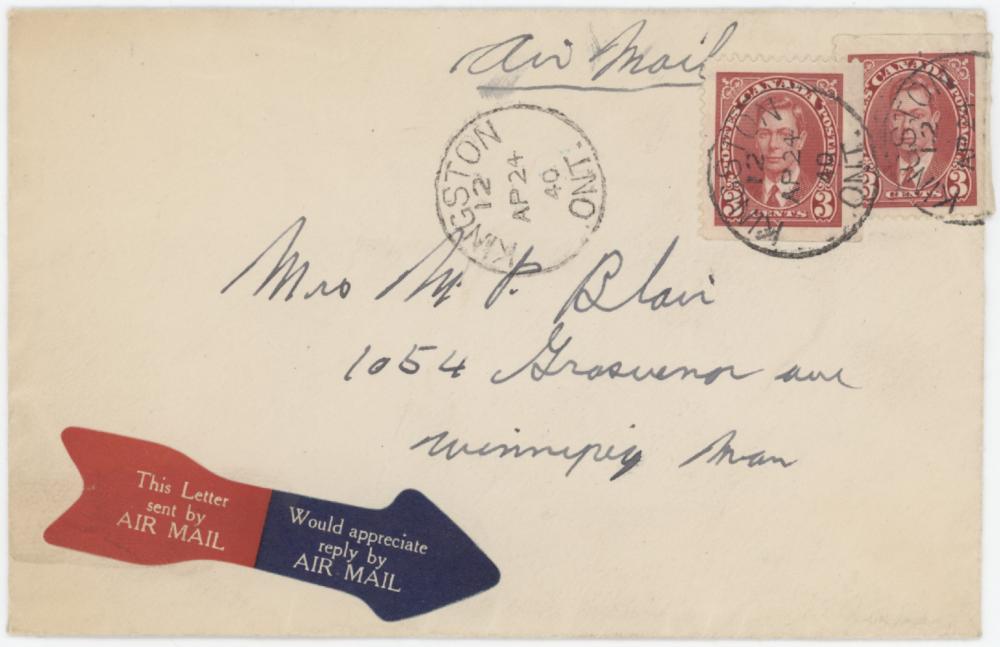 Air Mail
KINGSTON
12
AP 24
40
ONT.
POSTES CANADA POSTAGE
3 CENTS 3
KINGSTON
12
AP 24
40
ONT.
POSTES CANADA POSTAGE
CENTS 3
KINGSTO
12
AP
Mrs M. P. Blair
1054 Grosvenor ave
Winnipeg Man
This Letter
sent by
AIR MAIL
Would appreciate
reply by
AIR MAIL